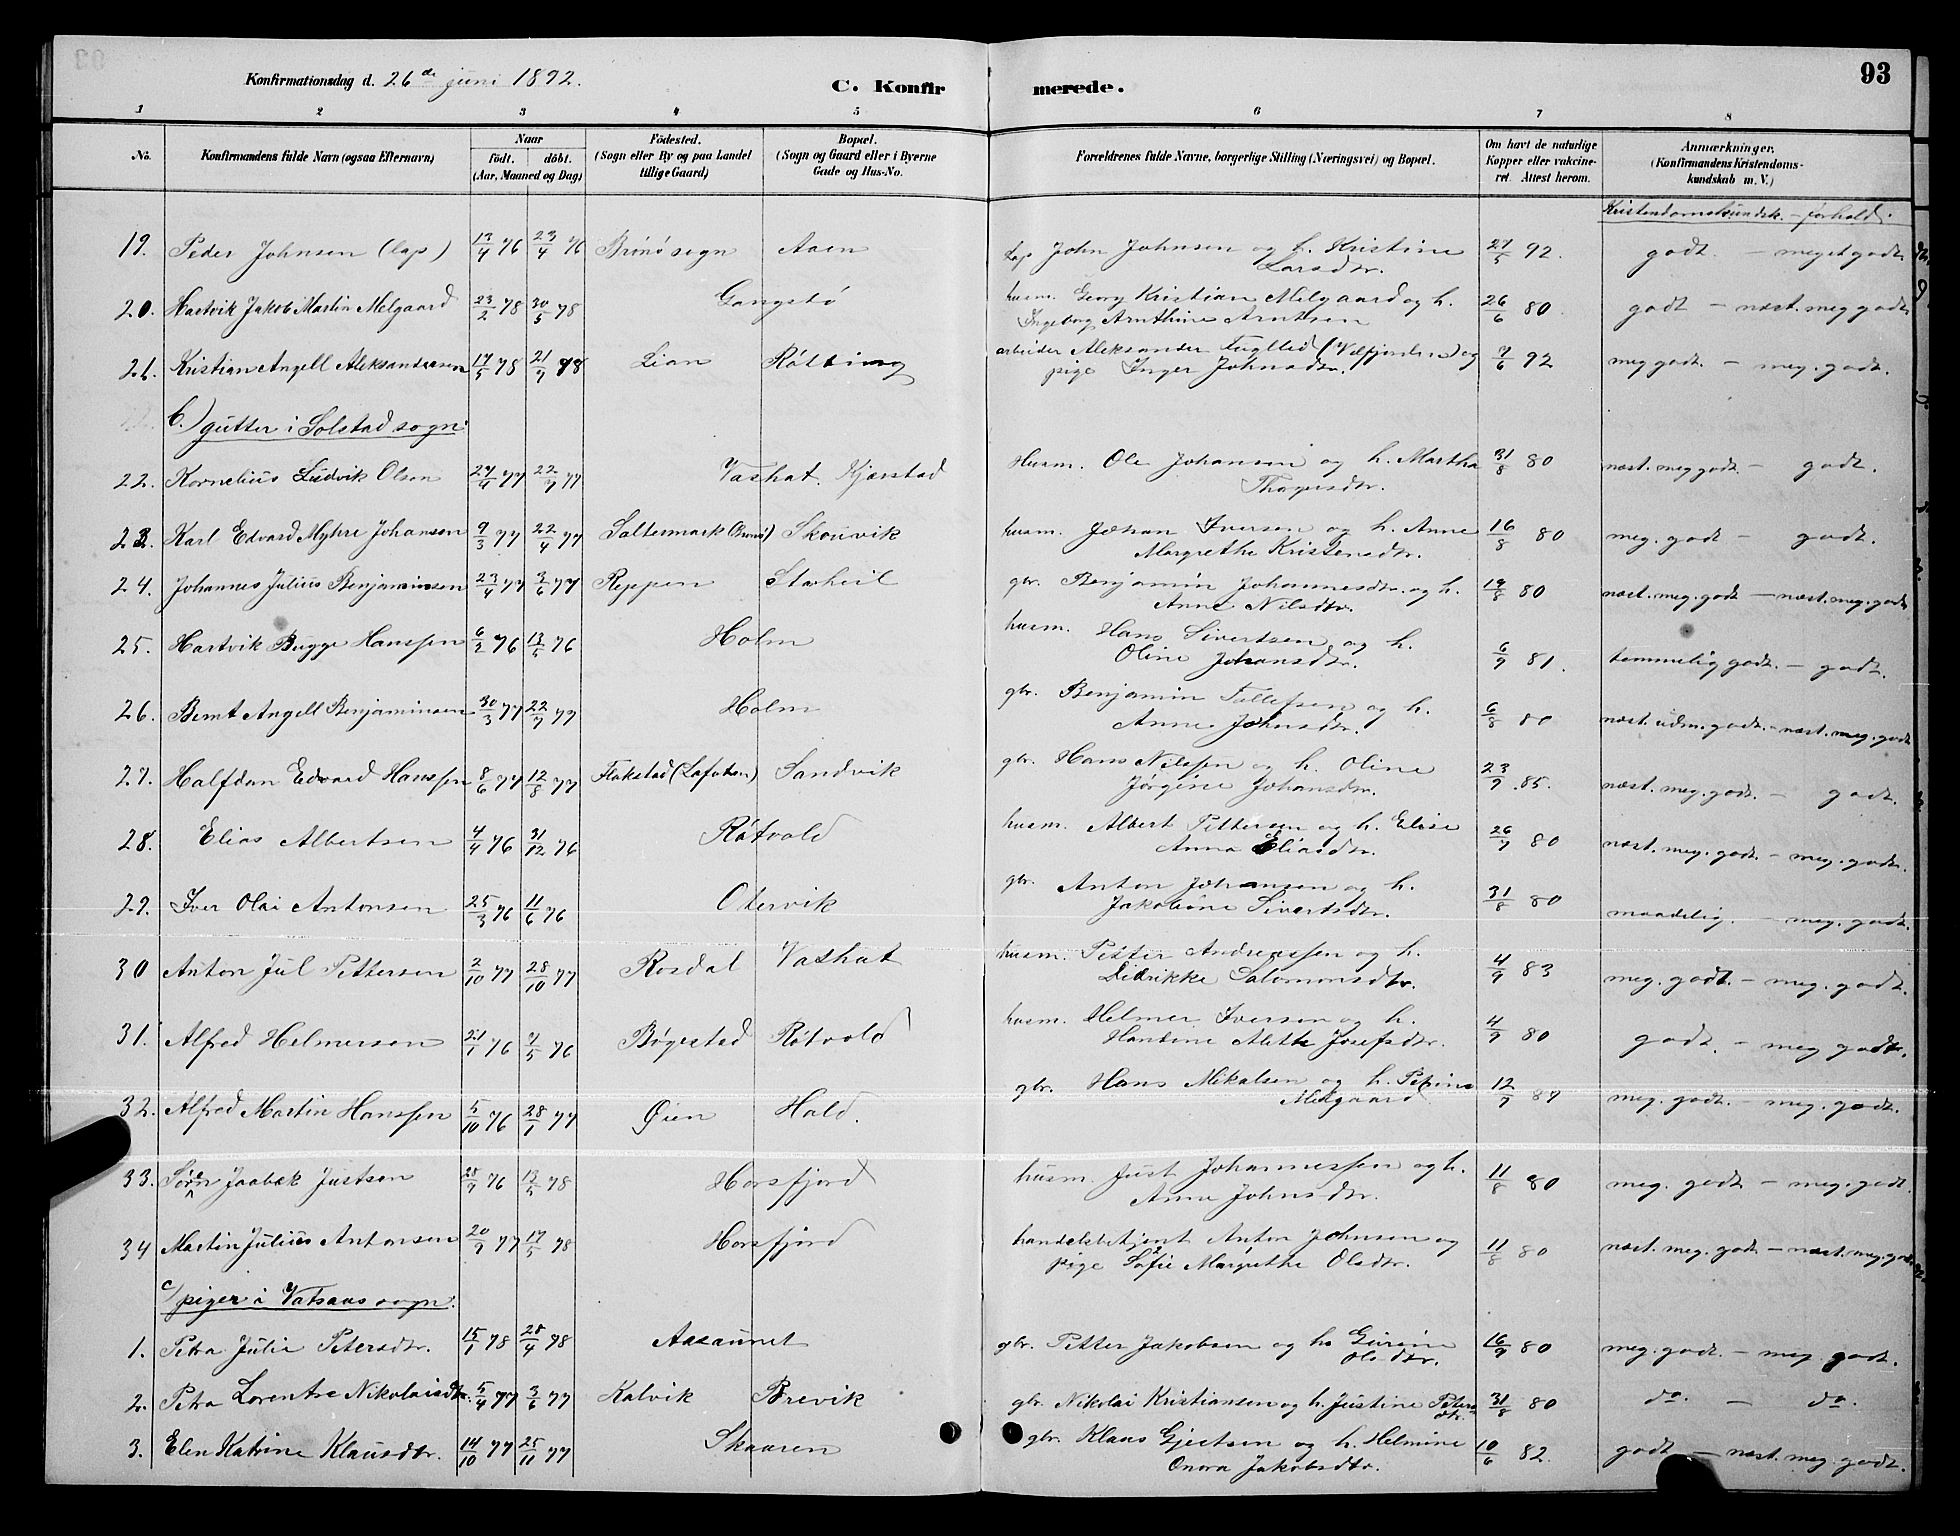 93
Konfirmationsdag d. 26de juni 1892.
C. Konfirmerede.
1 2 3 4 5 6 7 8
No.
Konfirmandens fulde Navn (ogsaa Efternavn)
Naar
födt. döbt.
(Aar, Maaned og Dag)
Födested.
(Sogn eller By og paa Landet tillige Gaard)
Bopæl.
(Sogn og Gaard eller i Byerne Gade og Hus-No.
Forældrenes fulde Navne, borgerlige Stilling (Næringsvei) og Bopæl.
Om havt de naturlige Kopper eller vakcineret. Attest herom.
Anmærkninger.
(Konfirmandens Kristendomskundskab m. V.)
Kristendomskundsk. – forhold.
19. Peder Johnsen (lap) 13/4 76 23/4 76 Brönö sogn Aaen Lap John Johnsen og h. Kristine Larsdtr. 27/5 92. godt. – meget godt
20. Hartvik Jakob Martin Melgaard 23/2 78 30/5 78 Gangstö husm. Georg Kristian Melgaard og h. Ingeborg Arnthine Arntsen 26/6 80. godt – næst. meg godt
21. Kristian Angell Aleksandersen 17/5 78 21/7 78 Lian Røtting arbeider Aleksander Fuglli (Velfjorden) og pige Inger Johnsdtr. 7/6 92 meg godt. – meg. godt.
b.) gutter i Solstad sogn:
22. Kornelius Ludvik Olsen 27/4 77 22/7 77 Vashat. Kjærstad Husm. Ole Johansen og h. Martha Thoresdtr. 31/8 80 næst. meg godt – godt.
23. Karl Edvard Myhre Johansen 9/3 77 22/4 77 Saltermark (Brönö) Skouvik husm. Johan Iversen og h. Anne Margrethe Kristensdtr. 16/8 80 meg. godt – godt.
24. Johannes Julius Benjaminsen 23/4 77 3/6 77 Reppen Storheil gbr. Benjamin Johannesdtr. og h. Anne Nilsdtr. 19/8 80 næst. meg. godt – næst. meg. godt
25. Hartvik Bugge Hanssen 6/2 76 13/5 76 Holm husm. Hans Sivertsen og h. Oline Johansdtr. 6/9 81. temmelig godt. – godt.
26. Bernt Angell Benjaminsen 30/3 77 22/7 77 Holm gbr. Benjamin Tollefsen og h. Anne Johnsdtr. 6/8 80 næst. udm. godt – næst. meg. godt
27. Halfdan Edvard Hanssen 8/6 77 12/8 77 Flakstad (Lofoten) Sandvik gbr. Hans Nilssen og h. Oline Jörgine Johansdtr. 23/9 85. næst. meg. godt. – godt.
28. Elias Albertsen 4/4 76 31/12 76 Røtvold husm. Albert Pettersen og h. Elise Anna Eliasdtr. 26/7 80 næst. meg. godt – meg. godt.
29. Iver Olai Antonsen 25/3 76 11/6 76 Otervik gbr. Anton Johansen og h. Jakobine Sivertsdtr. 31/8 80 maadelig. – meg. godt.
30 Anton Jul Pettersen 2/10 77 28/10 77 Rosdal Vashat husm. Petter Andreassen og h. Didrikke Salomonsdtr. 4/9 83 meg. godt. – meg. godt.
31. Alfred Helmersen 21/1 76 7/5 76 Bøgestad Røtvold husm. Helmer Iversen og h. Hantine Mette Josefsdtr. 4/9 80 godt. – meg godt.
32. Alfred Martin Hanssen 5/10 76 28/1 77 Øien Hald. gbr. Hans Mikalsen og h. Petrine Melgaard 12/7 87 meg. godt. – meg. godt.
33. Sören Jaabæk Justsen 28/9 76 13/5 78 Horsfjord husm. Just Johannessen og h. Anne Johnsdtr. 11/8 80 meg. godt – meg. godt.
34 Martin Julius Antonsen 20/9 77 17/5 78 Horsfjord handelsbetjent Anton Johnsen og pige Sofie Margrethe Olsdtr. 11/8 80 næst. meg. godt – næst. meg. godt
c/ piger i Vatsaas sogn.
1. Petra Julie Petersdtr. 15/1 78 28/4 78 Aasaunet gbr. Petter Jakobsen og h. Gurine Olsdtr. 16/9 80 meg. godt. – meg. godt.
2. Petra Lorentse Nikolaisdtr. 5/4 77 3/6 77 Kalvik Brevik gbr. Nikolai Kristiansen og h. Justine Petersdtr. 31/8 80 do. – do.
3. Elen Katrine Klausdtr. 14/10 77 25/11 77 Skaaren gbr. Klaus Gjertsen og h. Helmine Onora Jakobsdtr. 10/6 82. godt – næst. meg. godt.